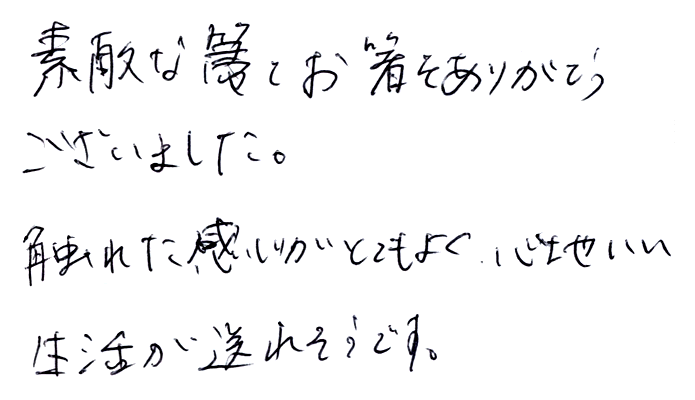 素敵な箸とお箸をありがとう
ございました。
触れた感じがとてもよく、心地いい
生活が送れそうです。